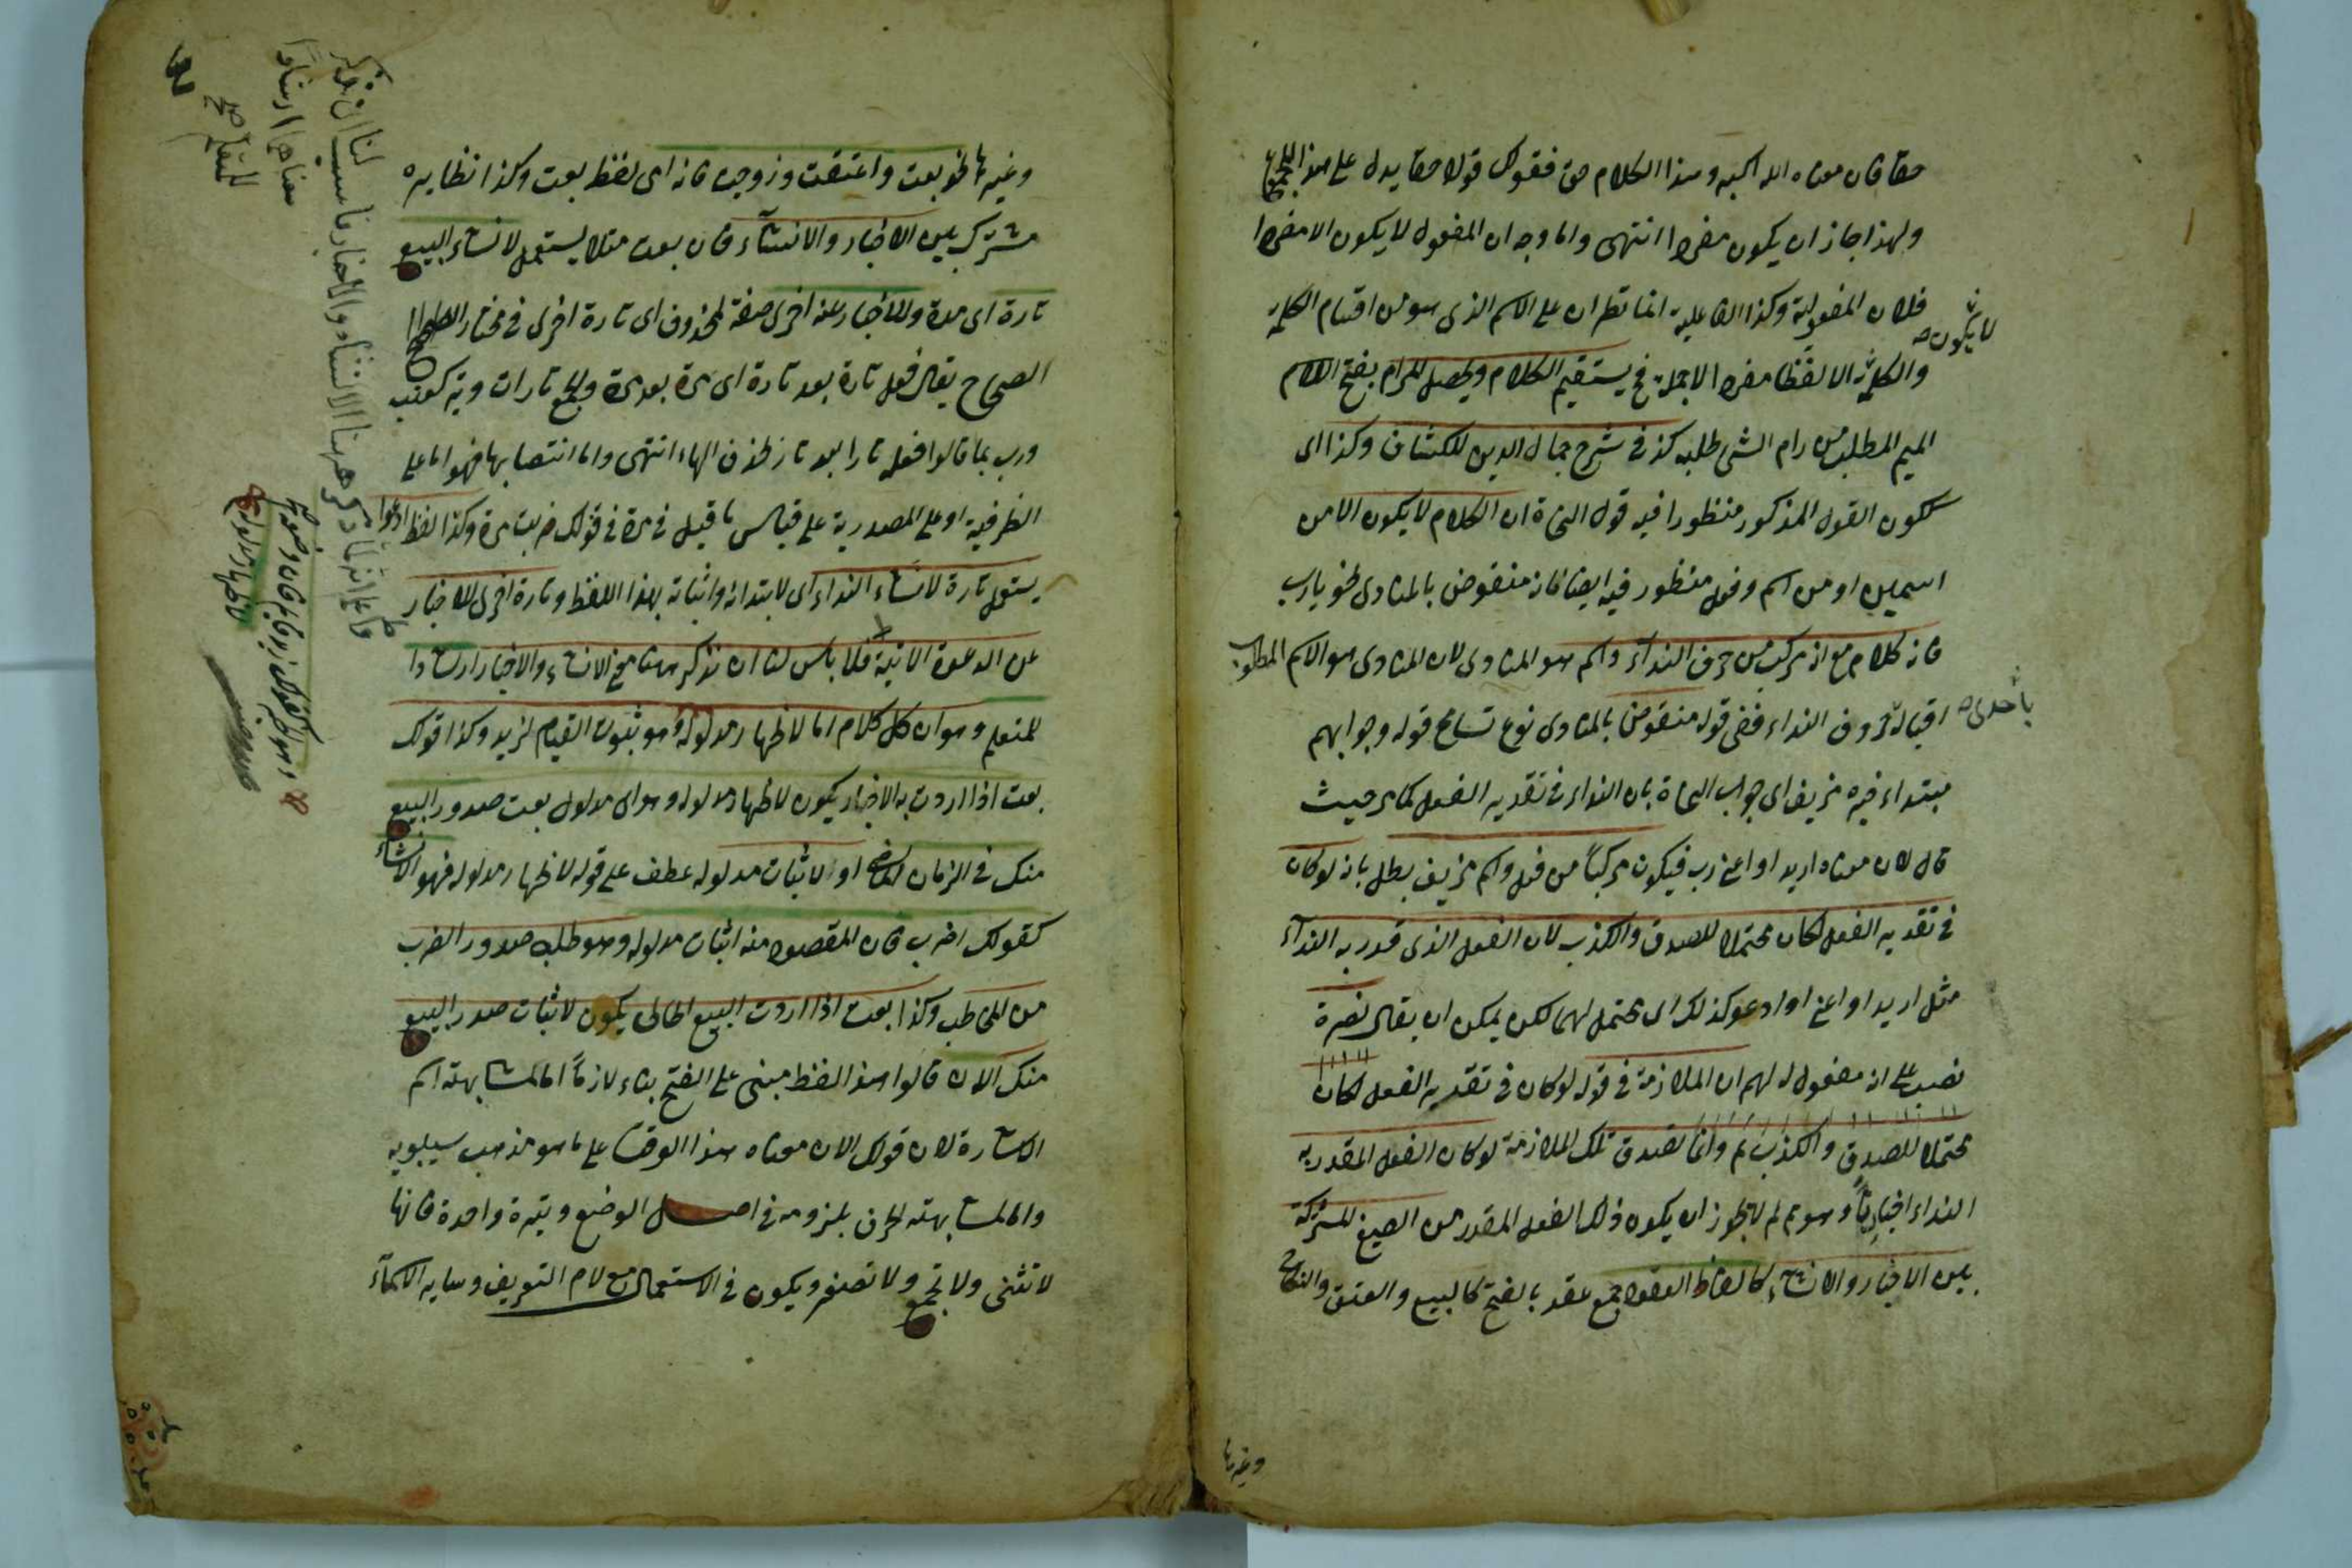 حقا فان معناه الله اكبر وهذا الكلام حق فقولك قولا حقا يدل على هذا المجموع
ولهذا جاز ان يكون مفردا انتهى واما وجه ان المفعول لا يكون الا مفردا
فلان المفعولية وكذا الفاعلية انما تطران على الاسم الذى هو من اقسام الكلمة
لا يكون
والكلمة الا لفظا مفردا لا جملة فح يستقيم الكلام ويحصل المرام بفتح اللام
الميم المطلب من رام الشئ طلبه كذا فى شرح جمال الدين للكشاف وكذا اى
ككون القول المذكور منظورا فيه قول النحاة ان الكلام لا يكون الا من
اسمين او من اسم وفعل منظور فيه ايضا فانه منقوض بالمنادى نحو يا رب
فانه كلام مع انه مركب من حرف النداء واسم هو المنادى لان المنادى هو الاسم المطلوب
باحدى
اقباله حروف النداء ففى قوله منقوض بالمنادى نوع تسامح قوله وجوابهم
مبتداء خبره مزيف اى جواب النحاة بان النداء فى تقدير الفعل كما مر حيث
قال لان معناه اريد او اعنى رب فيكون مركبا من فعل واسم مزيف بطل بانه لو كان
فى تقدير الفعل لكان محتملا للصدق والكذب لان الفعل الذى قدر به النداء
مثل اريد او اعنى او ادعو كذلك اى محتمل لهما لكن يمكن ان يقال نصرة
نصب على انه مفعول له لهم ان الملازمة فى قوله لو كان فى تقدير الفعل لكان
محتملا للصدق والكذب ثم وانما تصدق تلك الملازمة لو كان الفعل المقدر به
النداء اخباريا وهو مم لم لا يجوز ان يكون ذلك الفعل المقدر من الصيغ المشتركة
بين الاخبار والانشاء كالفاظ العقود جمع عقد بالفتح كالبيع والعتق والنكاح
وغيرها
وغيرها نحو بعت واعتقت وزوجت فانه اى لفظ بعت وكذا نظايره
مشترك بين الاخبار والانشاء فان بعت مثلا يستعمل لانشاء البيع
تارة اى مرة وللاخبار عنه اخرى صفة لمحذوف اى تارة اخرى فى مختار
الصحاح يقال فعل تارة بعد تارة اى مرة بعد مرة والجمع تارات وتير كعنب
وربما قالوا فعله تارا بعد تار بحذف الهاء انتهى واما انتصابها فهو اما على
الظرفية او على المصدرية على قياس ما قيل فى مرة فى قولك ضربت مرة وكذا لفظ ادعوا
يستعمل تارة لانشاء النداء اى لابتدائه واثباته بهذا اللفظ وتارة اخرى للاخبار
عن الدعوة الاتية فلا باس لنا ان نذكر ههنا معنى الانشاء والاخبار ارشادا
للمتعلم وهو ان كل كلام اما لاظهار مدلوله وهو ثبوت القيام لزيد وكذا قولك
بعت اذا اردت به الاخبار يكون لاظهار مدلوله وهو اى مدلول بعت صدور البيع
منك فى الزمان الماضى او لاثبات مدلوله عطف على قوله لاظهار مدلوله فهو الانشاء
كقولك اضرب فان المقصود منه اثبات مدلوله وهو طلب صدور الضرب
من المخاطب وكذا بعت اذا اردت البيع الحالى يكون لاثبات صدر البيع
منك الان قالوا هذا اللفظ مبنى على الفتح بناء لازما اما لمشابهته اسم
الاشارة لان قولك الان معناه هذا الوقت على ما هو مذهب سيبويه
واما لمشابهته الحرف بلزومه فى اصل الوضع وتيرة واحدة فانها
لا تثنى ولا تجمع ولا تصغر ويكون فى الاستعمال مع لام التعريف وساير الاسماء